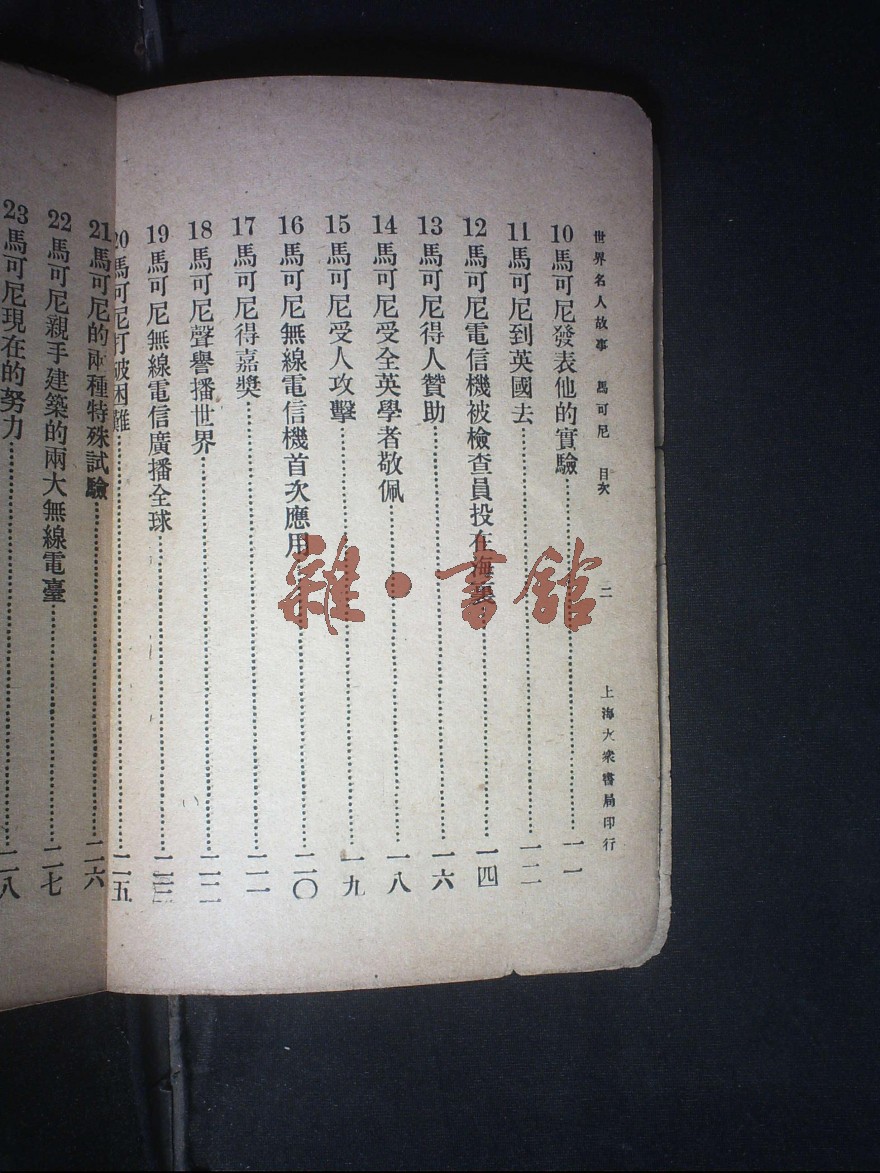 世界名人故事 馬可尼 目次 二 上海大衆書局印行
10 馬可尼發表他的實驗……一一
11 馬可尼到英國去……一二
12 馬可尼電信機被檢查員投在海裏……一四
13 馬可尼得人贊助……一六
14 馬可尼受全英學者敬佩……一八
15 馬可尼受人攻擊……一九
16 馬可尼無線電信機首次應用……二〇
17 馬可尼得嘉奬……二一
18 馬可尼聲譽播世界……二二
19 馬可尼無線電信廣播全球……二三
20 馬可尼打破困難……二五
21 馬可尼的兩種特殊試驗……二六
22 馬可尼親手建築的兩大無線電臺……二七
23 馬可尼現在的努力……二八
雜·書館